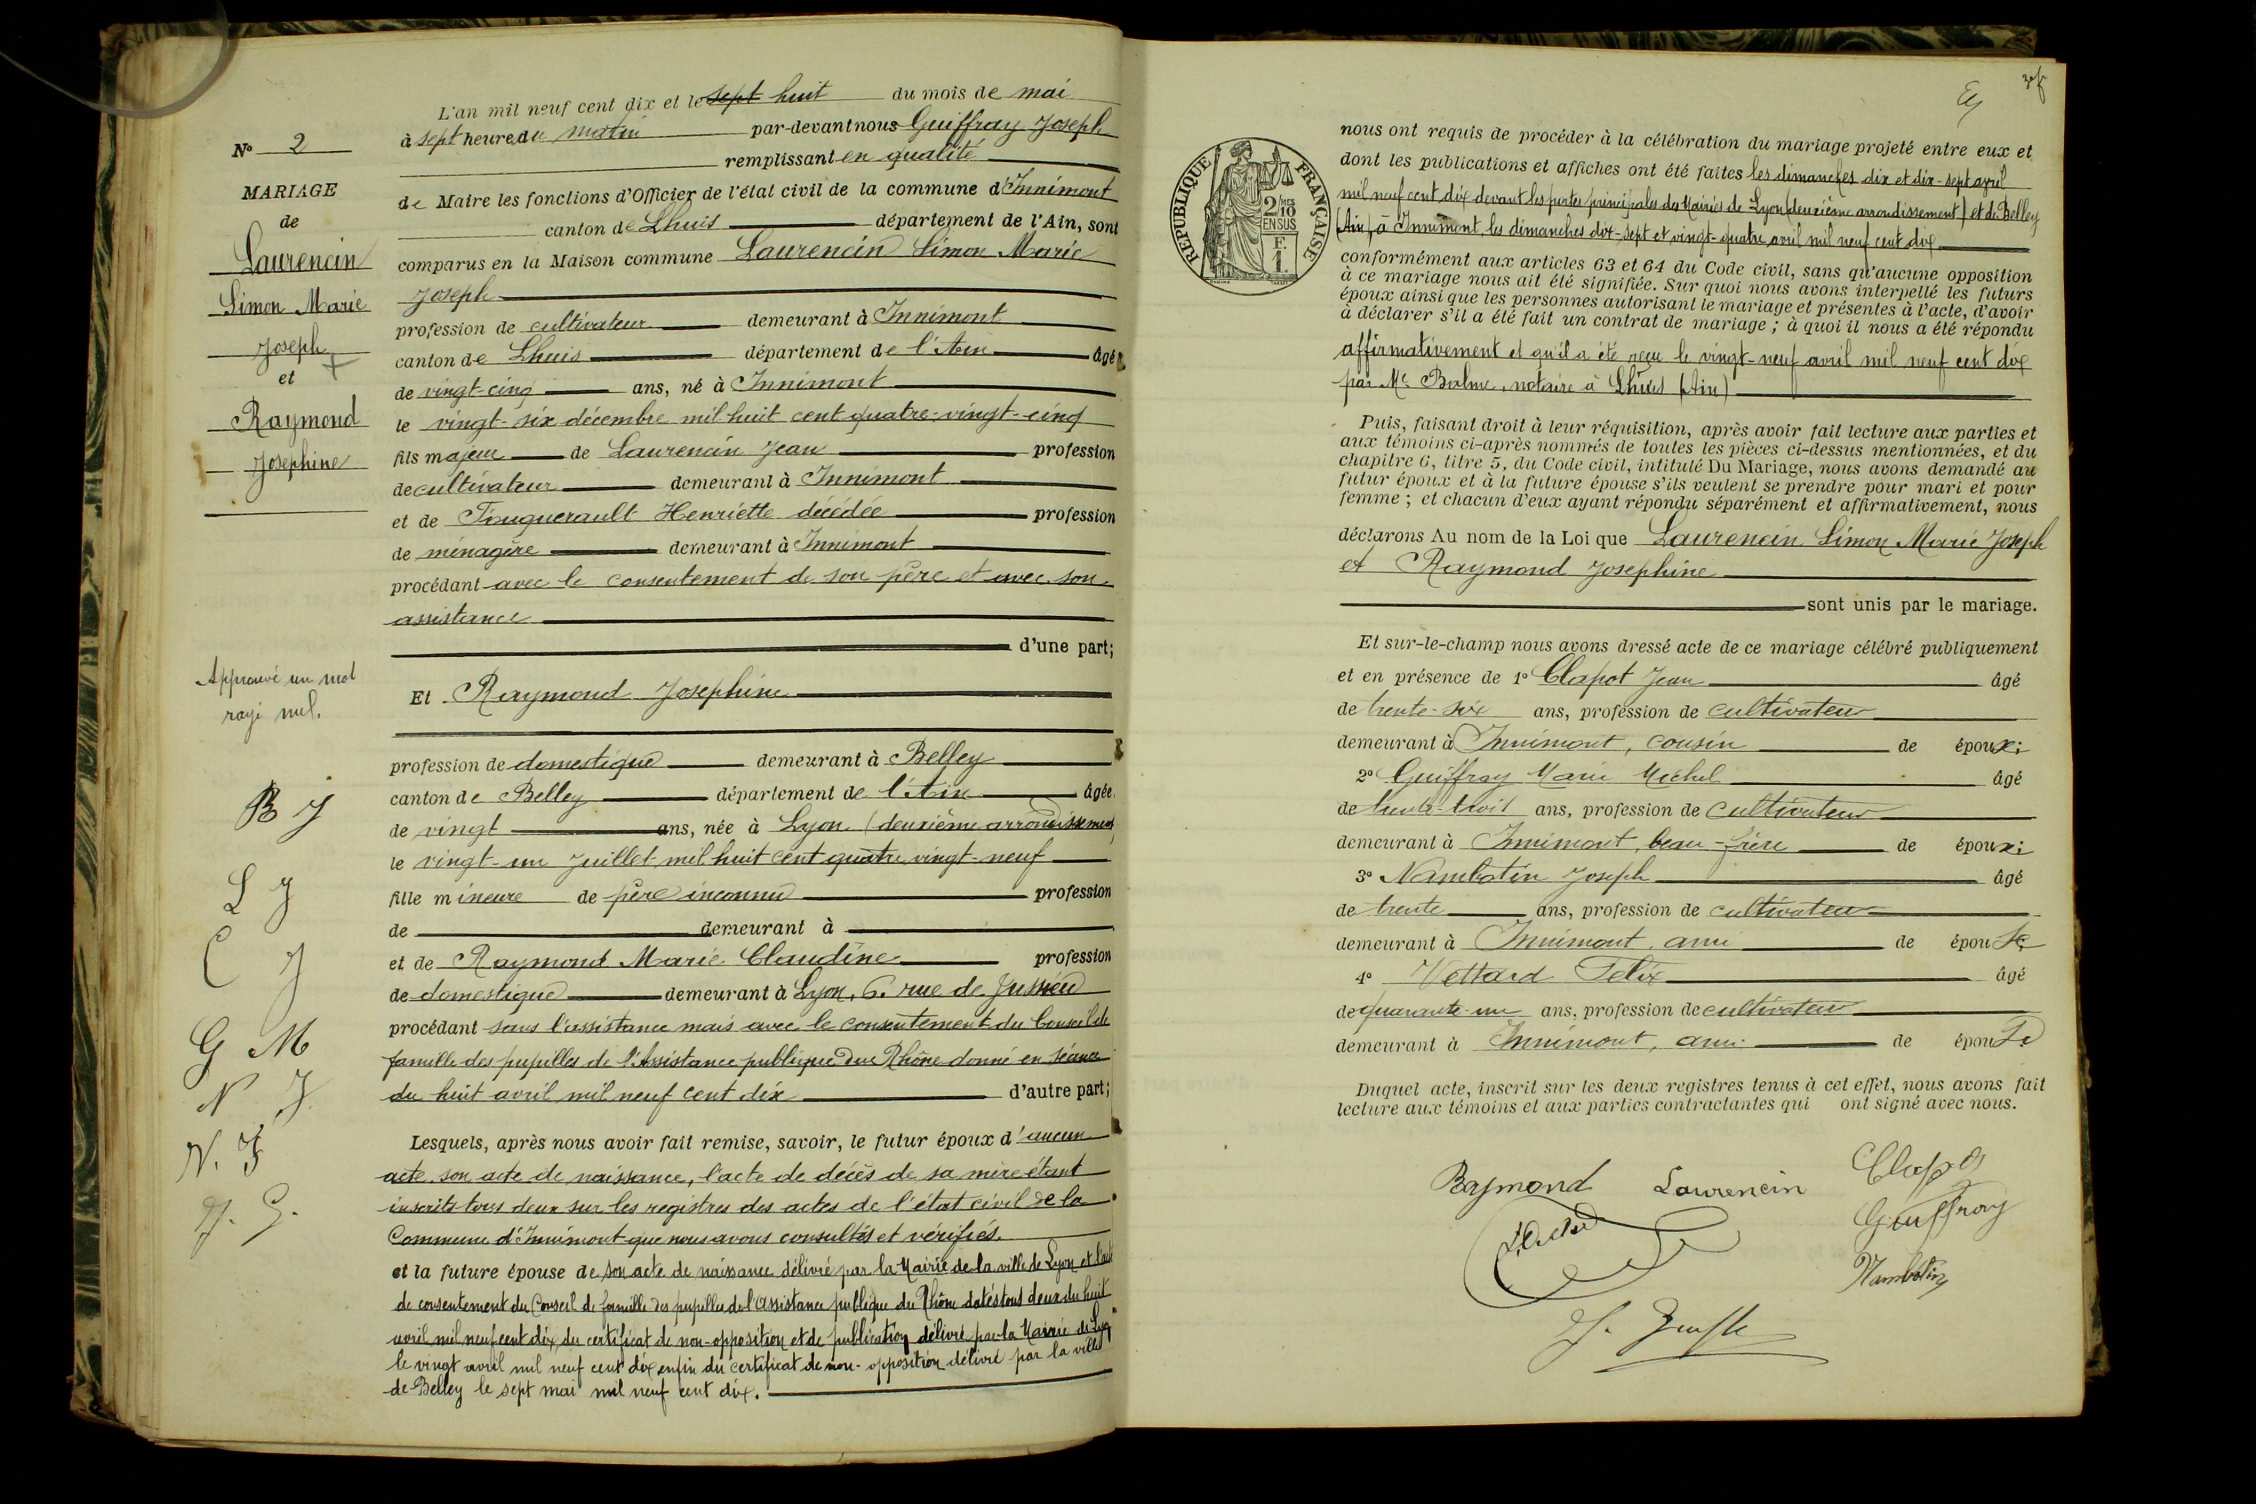 L'an mil neuf cent dix et le sept huit du mois de mai
à sept heures du matin par-devant nous Guiffray Joseph
remplissant en qualité
de Maire les fonctions d'Officier de l'état civil de la commune d'Innimont
canton de Lhuis département de l'Ain, sont
comparus en la Maison commune Laurencin Simon Marie
Joseph
profession de cultivateur demeurant à Innimont
canton de Lhuis département de l'Ain âgé
de vingt-cinq ans, né à Innimont
le vingt-six décembre mil huit cent quatre-vingt-cinq
fils majeur de Laurencin Jean profession
de cultivateur demeurant à Innimont
et de Fouguerault Henriette décédée profession
de ménagère demeurant à Innimont
procédant avec le consentement de son père et avec son
assistance
d'une part;
Et Raymond Josephine
profession de domestique demeurant à Belley
canton de Belley département de l'Ain âgée
de vingt ans, née à Lyon (deuxième arrondissement)
le vingt-un Juillet mil huit cent quatre vingt-neuf
fille mineure de père inconnu profession
de demeurant à
et de Raymond Marie Claudine profession
de domestique demeurant à Lyon, 6. rue de Jussieu
procédant sans l'assistance mais avec le consentement du Conseil de
famille des pupilles de l'Assistance publique du Rhône donné en séance
du huit avril mil neuf cent dix d'autre part;
Lesquels, après nous avoir fait remise, savoir, le futur époux d'aucun
acte son acte de naissance, l'acte de décès de sa mère étant
inscrits tous deux sur les registres des actes de l'état civil de la
Commune d'Innimont que nous avons consultés et vérifiés.
et la future épouse de son acte de naissance délivré par la Mairie de la ville de Lyon et l'acte
de consentement du Conseil de famille des pupilles de l'Assistance publique du Rhône datés tous deux du huit
avril mil neuf cent dix, du certificat de non-opposition et de publication délivré par la Mairie de Lyon
le vingt avril mil neuf cent dix enfin du certificat de non-opposition délivré par la ville
de Belley le sept mai mil neuf cent dix.
N° 2
MARIAGE
de
Laurencin
Simon Marie
Joseph
et
Raymond
Josephine
Approuvé un mot
rayé nul.
R J
L J
C J
G M
N J.
V. F
J. G.
REPUBLIQUE FRANÇAISE
2/10
EN SUS
1 F.
nous ont requis de procéder à la célébration du mariage projeté entre eux et
dont les publications et affiches ont été faites les dimanches dix et dix-sept avril
mil neuf cent dix devant les portes principales des Mairies de Lyon (deuxième arrondissement) et de Belley
(Ain), à Innimont, les dimanches dix-sept et vingt-quatre avril mil neuf cent dix
conformément aux articles 63 et 64 du Code civil, sans qu'aucune opposition
à ce mariage nous ait été signifiée. Sur quoi nous avons interpellé les futurs
époux ainsi que les personnes autorisant le mariage et présentes à l'acte, d'avoir
à déclarer s'il a été fait un contrat de mariage ; à quoi il nous a été répondu
affirmativement et qu'il a été reçu le vingt-neuf avril mil neuf cent dix
par Me Balme, notaire à Lhuis (Ain)
Puis, faisant droit à leur réquisition, après avoir fait lecture aux parties et
aux témoins ci-après nommés de toutes les pièces ci-dessus mentionnées, et du
chapitre 6, titre 5, du Code civil, intitulé Du Mariage, nous avons demandé au
futur époux et à la future épouse s'ils veulent se prendre pour mari et pour
femme ; et chacun d'eux ayant répondu séparément et affirmativement, nous
déclarons Au nom de la Loi que Laurencin Simon Marie Joseph
et Raymond Josephine
sont unis par le mariage.
Et sur-le-champ nous avons dressé acte de ce mariage célébré publiquement
et en présence de 1° Clapot Jean âgé
de trente-six ans, profession de cultivateur
demeurant à Innimont, cousin de époux;
2° Guiffray Marie Michel âgé
de trente-trois ans, profession de cultivateur
demeurant à Innimont, beau-frère de époux;
3° Nambotin Joseph âgé
de trente ans, profession de cultivateur
demeurant à Innimont, ami de épouse;
4° Vettard Felix âgé
de quarante-un ans, profession de cultivateur
demeurant à Innimont, ami de épouse
Duquel acte, inscrit sur les deux registres tenus à cet effet, nous avons fait
lecture aux témoins et aux parties contractantes qui ont signé avec nous.
Raymond Laurencin Clapot
Guiffray
Nambotin